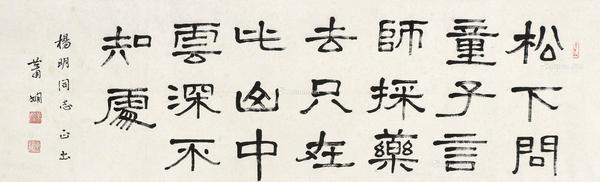 松下問
童子言
師採藥
去只在
此山中
雲深不
知處
楊明同志 正
蕭嫻